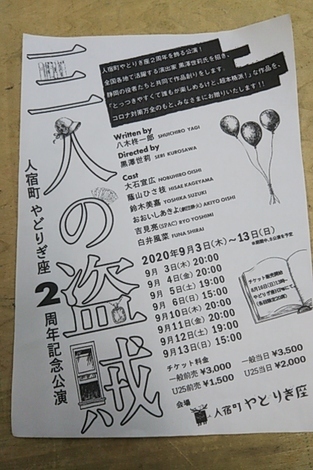 三人の盗賊
人宿町 やどりぎ座 2周年記念公演
人宿町やどりぎ座2周年を飾る公演！
全国各地で活躍する演出家 黒澤世莉氏を招き、
静岡の役者たちと共同で作品創りをします。
『とっつきやすくて誰もが楽しめるけど、結本格派！』な作品を、
コロナ対策万全のもと、みなさまにお贈りいたします！！
Written by
八木柊一郎 SHUICHIRO YAGI
Directed by
黒澤世莉 SERI KUROSAWA
Cast
大石宣広 NOBUHIRO OISHI
蔭山ひさ枝 HISAE KAGEYAMA
鈴木美嘉 YOSHIKA SUZUKI
おおいしあきよ AKIYO OISHI
吉見亮(SPAC) RYO YOSHIMI
白井風菜 YUNA SHIRAI
2020年9月3日(木)〜13日(日)
9月 3日(木) 20:00
9月 4日(金) 20:00
9月 5日(土) 19:00
9月 6日(日) 15:00
9月10日(木) 20:00
9月11日(金) 20:00
9月12日(土) 19:00
9月13日(日) 15:00
チケット販売開始
8月16日(日)
チケット料金
一般前売 ¥3,000 一般当日 ¥3,500
U25前売 ¥1,500 U25当日 ¥2,000
会場
人宿町 やどりぎ座